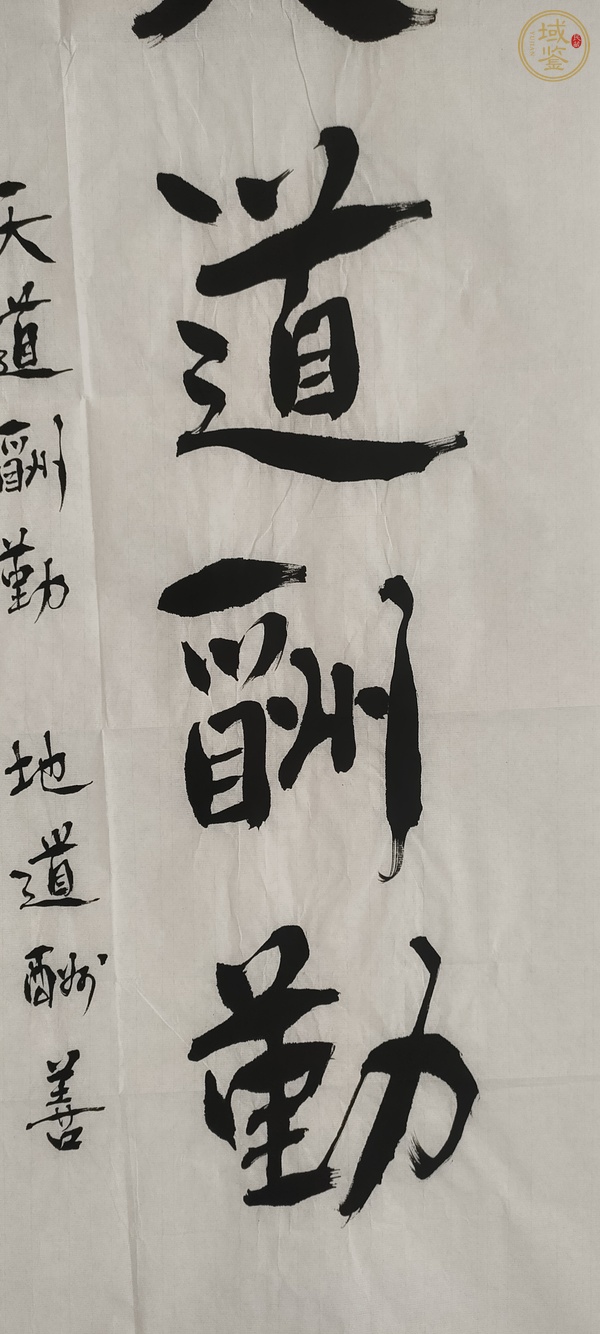 天道酬勤
天道酬勤 地道酬善
域鉴